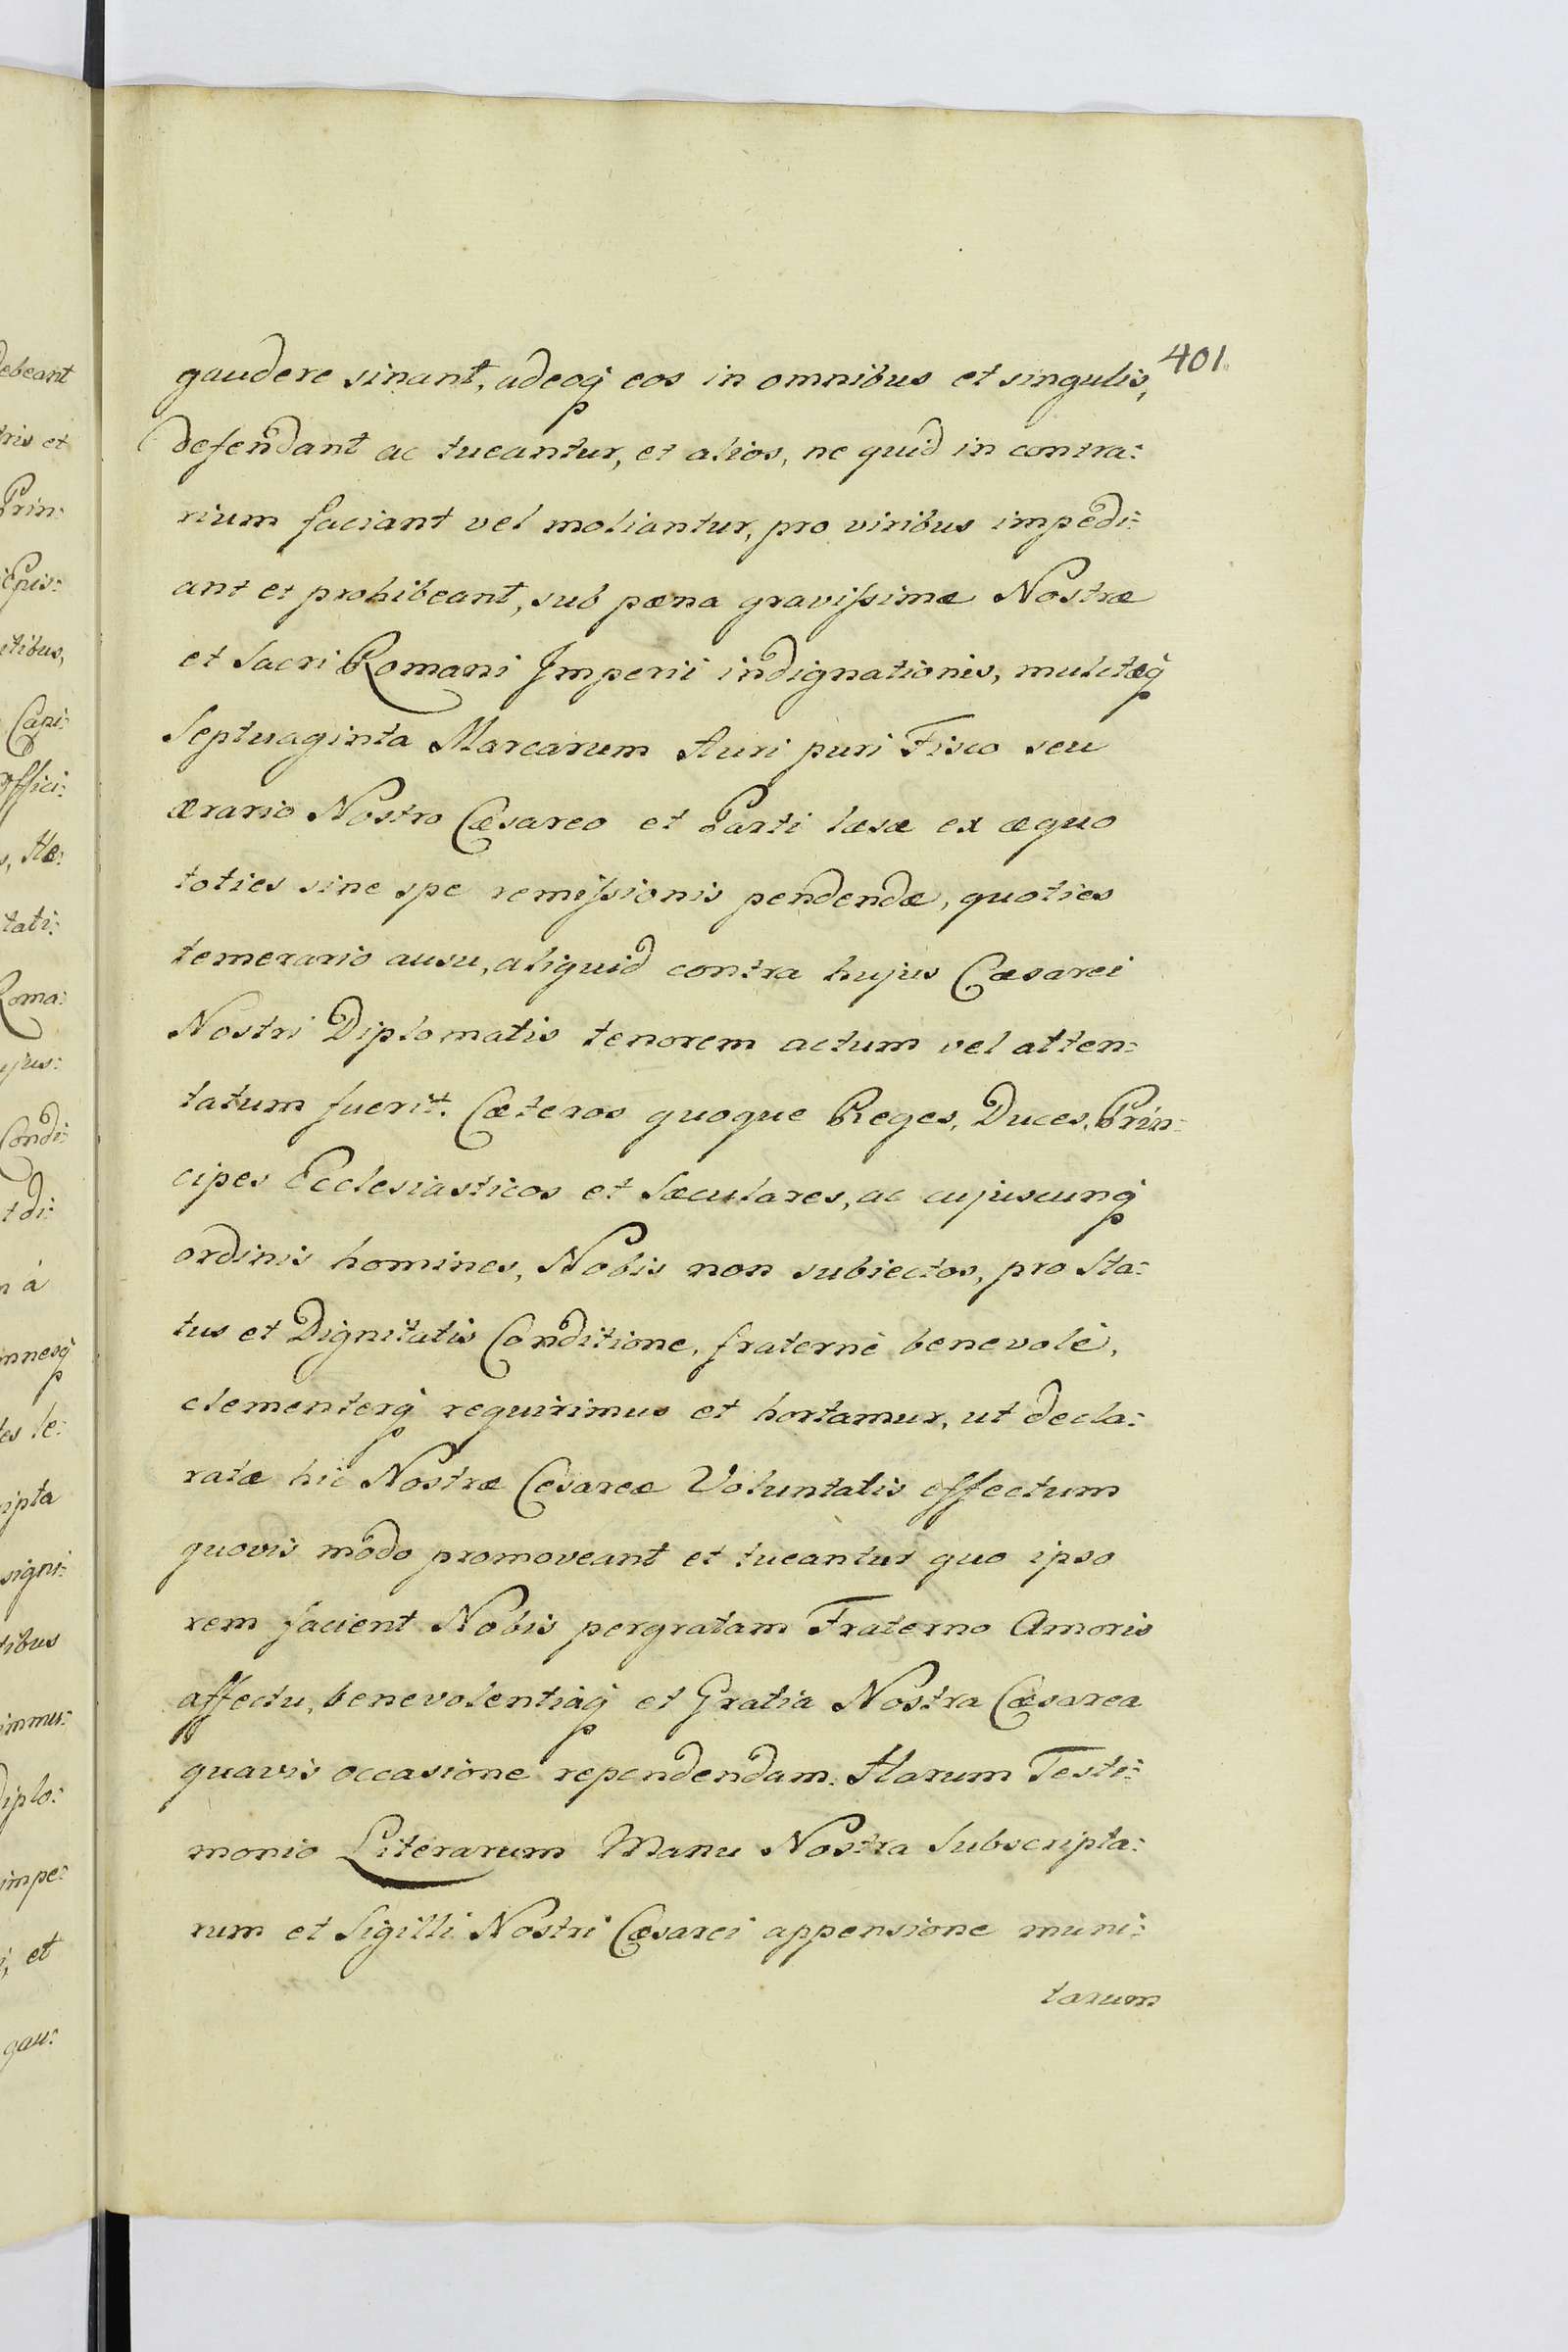 401.
gaudere sinant, adeoq₃ eos in omnibus et singulis,
defendant ac tueantur, et alios, ne quid in contra:
rium faciant vel moliantur, pro viribus impedi:
ant et prohibeant, sub pœna gravissimæ Nostræ
et Sacri Romani Imperii indignationis, mulctæq₃
Septuaginta Marcarum Auri puri Fisco seu
ærario Nostro Cæsareo et Parti læsæ ex æquo
toties sine spe remissionis pendendæ, quoties
temerario ausu, aliquid contra hujus Cæsarei
Nostri Diplomatis tenorem actum vel atten:
tatum fuerit. Cæteros quoque Reges, Duces, Prin:
cipes Ecclesiasticos et Sæculares, ac cujuscunq₃
ordinis homines, Nobis non subiectos, pro Sta:
tus et Dignitatis Conditione, fraternè benevolè,
clementerq₃ requirimus et hortamur, ut decla:
ratæ hic Nostræ Cesareæ Voluntatis effectum
quovis modo promoveant et tueantur quo ipso
rem facient Nobis pergratam Fraterno Amoris
affectu, benevolentiaq₃ et Gratia Nostra Cæsarea
quavis occasione rependendam. Harum Testi:
monio Literarum Manu Nostra Subscripta:
rum et Sigilli Nostri Cæsarei appensione muni:
tarum
ebeant
ris et
Prin:
Epis:
itibus,
Capi:
offici:
s, Hæ:
tati:
Roma:
ujus:
Condi:
t di:
n à
mnesq₃
tes le:
ripta
signi:
tibus
immu:
Diplo:
impe:
i, et
gau: